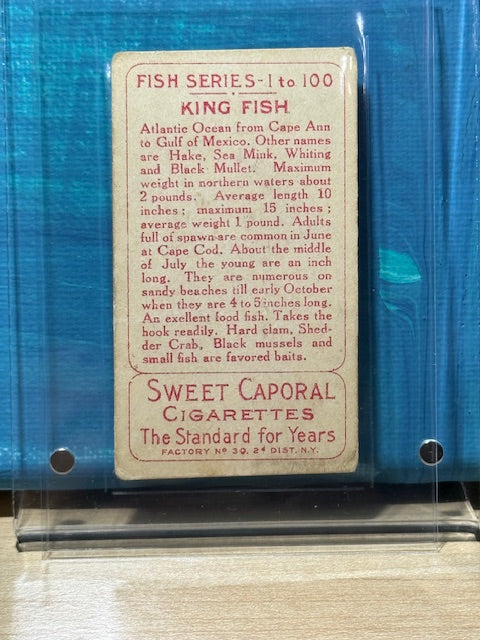 FISH SERIES-1 to 100
KING FISH
Atlantic Ocean from Cape Ann
to Gulf of Mexico. Other names
are Hake, Sea Mink, Whiting
and Black Mullet. Maximum
weight in northern waters about
2 pounds. Average length 10
inches; maximum 15 inches;
average weight 1 pound. Adults
full of spawn are common in June
at Cape Cod. About the middle
of July the young are an inch
long. They are numerous on
sandy beaches till early October
when they are 4 to 5 inches long.
An exellent food fish. Takes the
hook readily. Hard clam, Shed-
der Crab, Black mussels and
small fish are favored baits.
SWEET CAPORAL
CIGARETTES
The Standard for Years
FACTORY Nº 30, 2d DIST. N.Y.